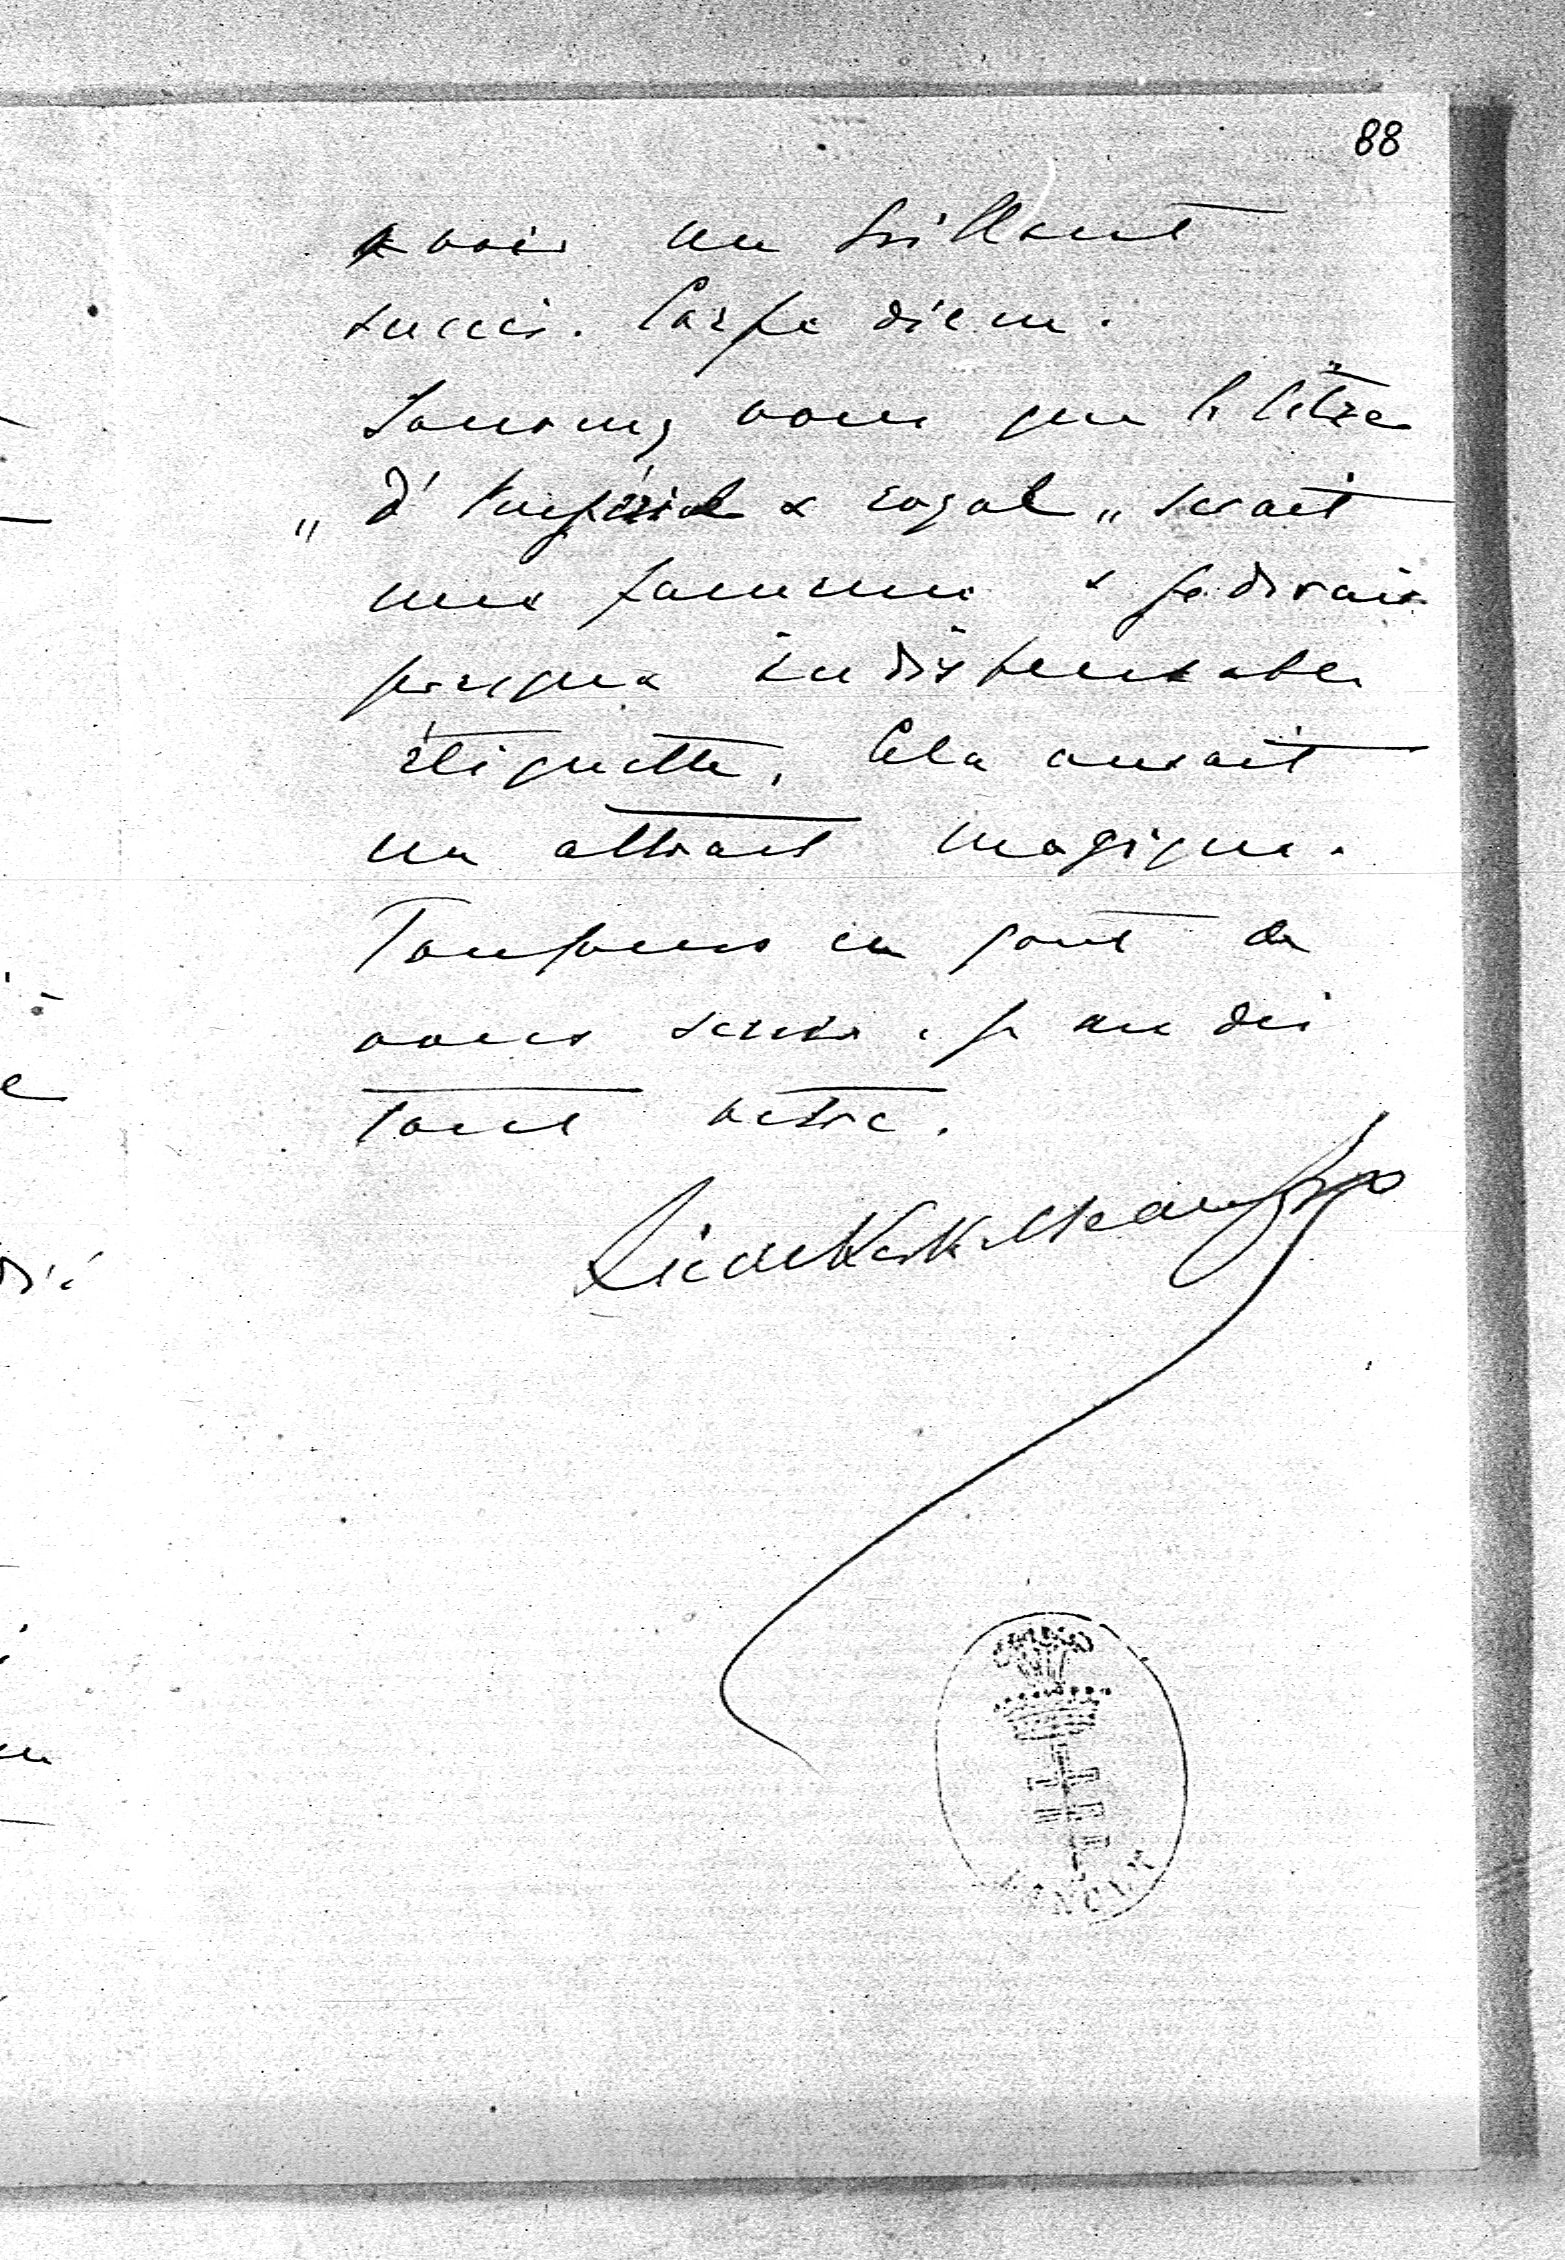 88
avoir un brillant
succès. Carpe diem.
Souvenez vous que le titre
„ d'Impérial & royal „ serait
une fameuse & je dirais
presque indispensable
étiquette. Cela aurait
un attrait magique.
Toujours en goût de
vous servir, je me dis
tout vôtre.
ŁAŃCUT